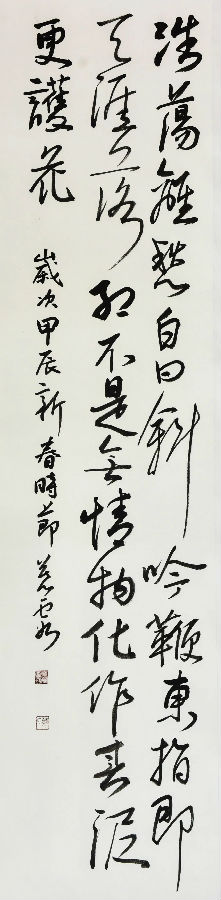 浩蕩離愁白日斜吟鞭東指即
天涯落紅不是無情物化作春泥
更護花
歲次甲辰新春時節